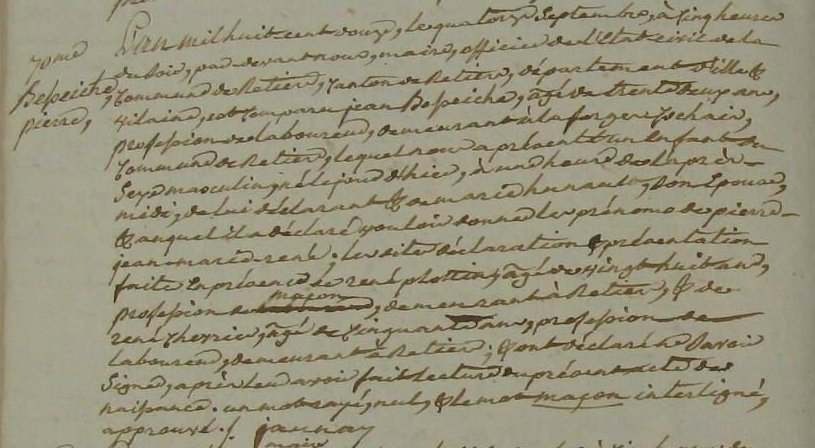 70me
Depeiche,
pierre,
L'an mil huit cent douze, le quatorze Septembre, à cinq heures
du soir, par devant nous, maire, officier de l'Etat civil de la
Commune de Retier, Canton de Retier, département d'ille &
vilaine, est comparu jean Depeiche, agé de trente deux ans,
profession de laboureur, demeurant à la forge
Commune de Retier, lequel nous a présenté un Enfant du
Sexe masculin, né le jour d'hier, à une heure de l'après-
midi, de lui déclarant & de marie hunault, Son Epouse,
& auquel il a déclaré vouloir donner les prénoms de pierre-
jean-marie-rené. les dite déclaration & présentation
faite En présence de rené plottin, agé de vingt huit ans,
profession de maçon, demeurant à Retier, & de
rené Cherrie, agé de Cinquante ans, profession de
laboureur, demeurant à Retier; & ont déclaré ne Savoir
Signer, après leur avoir fait lecture du présent acte de
naissance. un mot rayé, nul, & le mot maçon interligné,
approuvé./. jaunay
maire